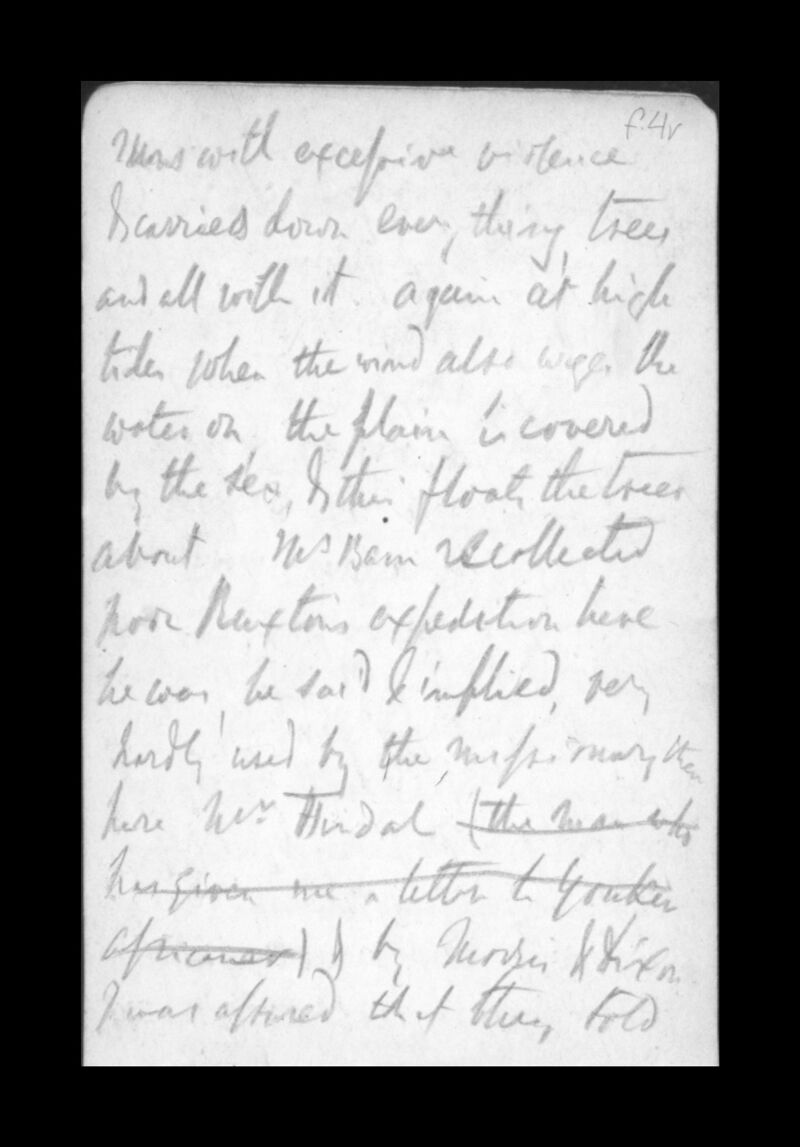 f.4v
runs with excessive violence
& carries down every thing trees
and all with it. again at high
tides when the wind also urges the
water on the plain is covered
by the sea, & this floats the trees
about Mr Bam recollected
poor Ruxton's expedition here
he was, he said & implied, very
hardly used by the missionary then
here Mr Tindal (the man who
has given me a letter to Yonker
africaner) & by Morris & Dixon
I was assured that they told